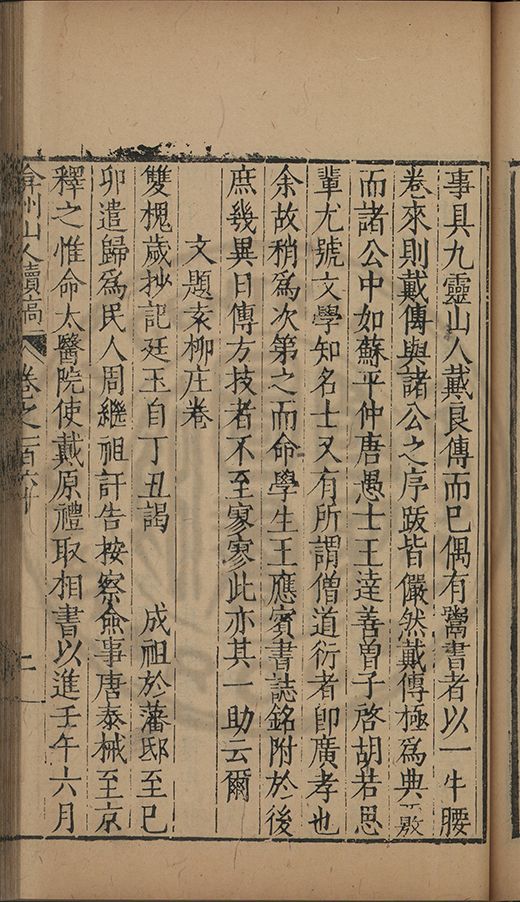 事具九靈山人戴良傳而已偶有鬻書者以一牛腰
卷來則戴傳與諸公之序跋皆儼然戴傳極爲典覈
而諸公中如蘇平仲唐愚士王達善曽子啓胡若思
輩尤號文學知名士又有所謂僧道衍者卽廣孝也
余故稍爲次第之而命學生王應賓書誌銘附於後
庶幾異日傳方技者不至寥寥此亦其一助云爾
文題袁柳庄卷
雙槐歲抄記廷玉自丁丑謁　成祖於藩邸至巳
卯遣歸爲民人周繼祖訐告按察僉事唐泰械至京
釋之惟命太醫院使戴原禮取相書以進壬午六月
弇州山人續稿　卷之一百六十　二